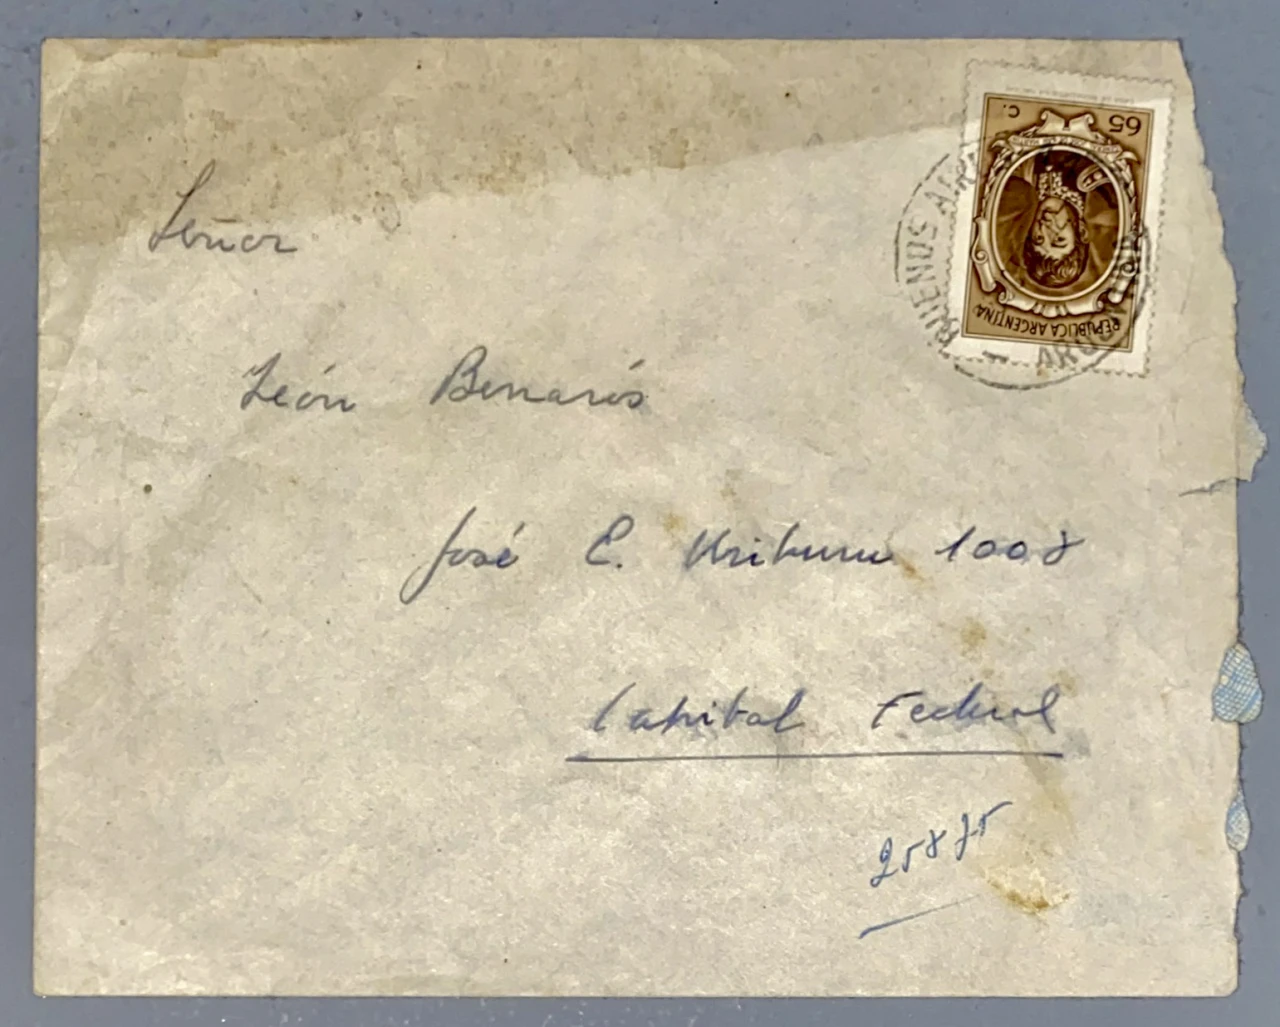 65
C.
REPUBLICA ARGENTINA
BUENOS AIRES
ARGENTINA
Señor
León Benarós
José E. Uriburu 1008
Capital Federal
25875